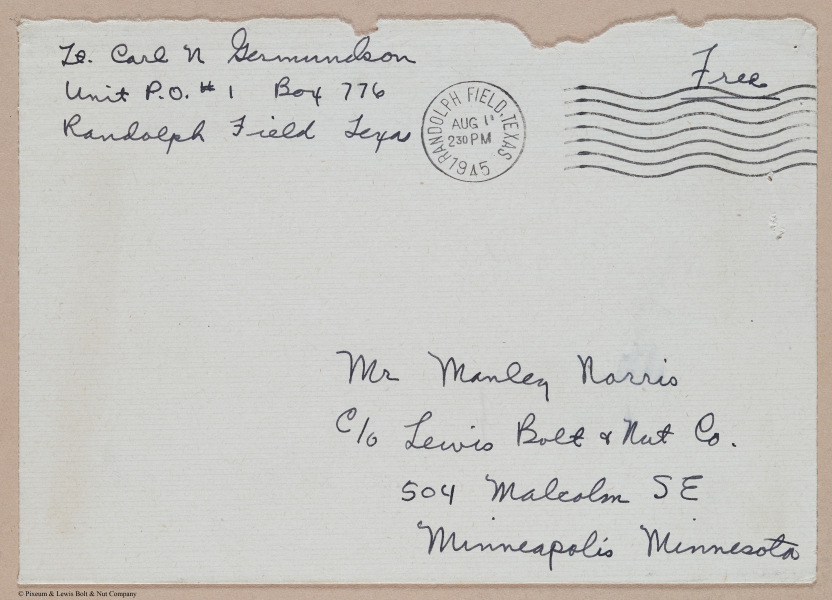 Lt. Carl N Germundson
Unit P.O. #1 Box 776
Randolph Field Texas
RANDOLPH FIELD, TEXAS
AUG 11
2 30 PM
1945
Free
Mr Manley Norris
C/o Lewis Bolt & Nut Co.
504 Malcolm SE
Minneapolis Minnesota
© Pixeum & Lewis Bolt & Nut Company